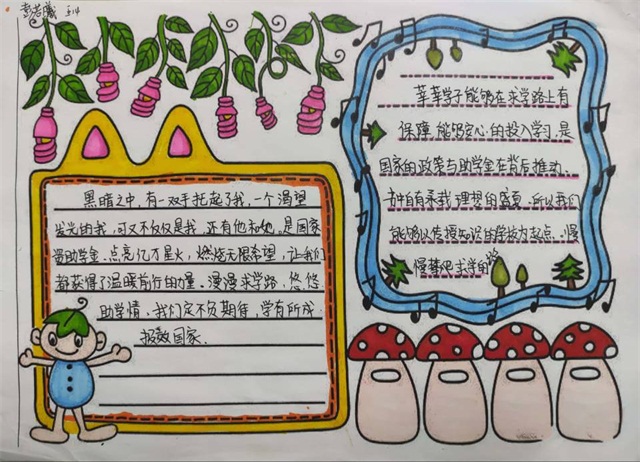 彭若曦 514
黑暗之中,有一双手托起了我,一个渴望
发光的我,可又不仅仅是我,还有他和她,是国家
资助学金,点亮亿万星火,燃烧无限希望,让我们
都获得了温暖前行的力量。漫漫求学路,悠悠
助学情,我们定不负期待,学有所成
报效国家.
莘莘学子能够在求学路上有
保障,能够安心的投入学习,是
国家的政策与助学金在背后推动.
书中自有承载理想的,所以我们
能够以传授知识的学校为起点,慢
慢攀爬求学的